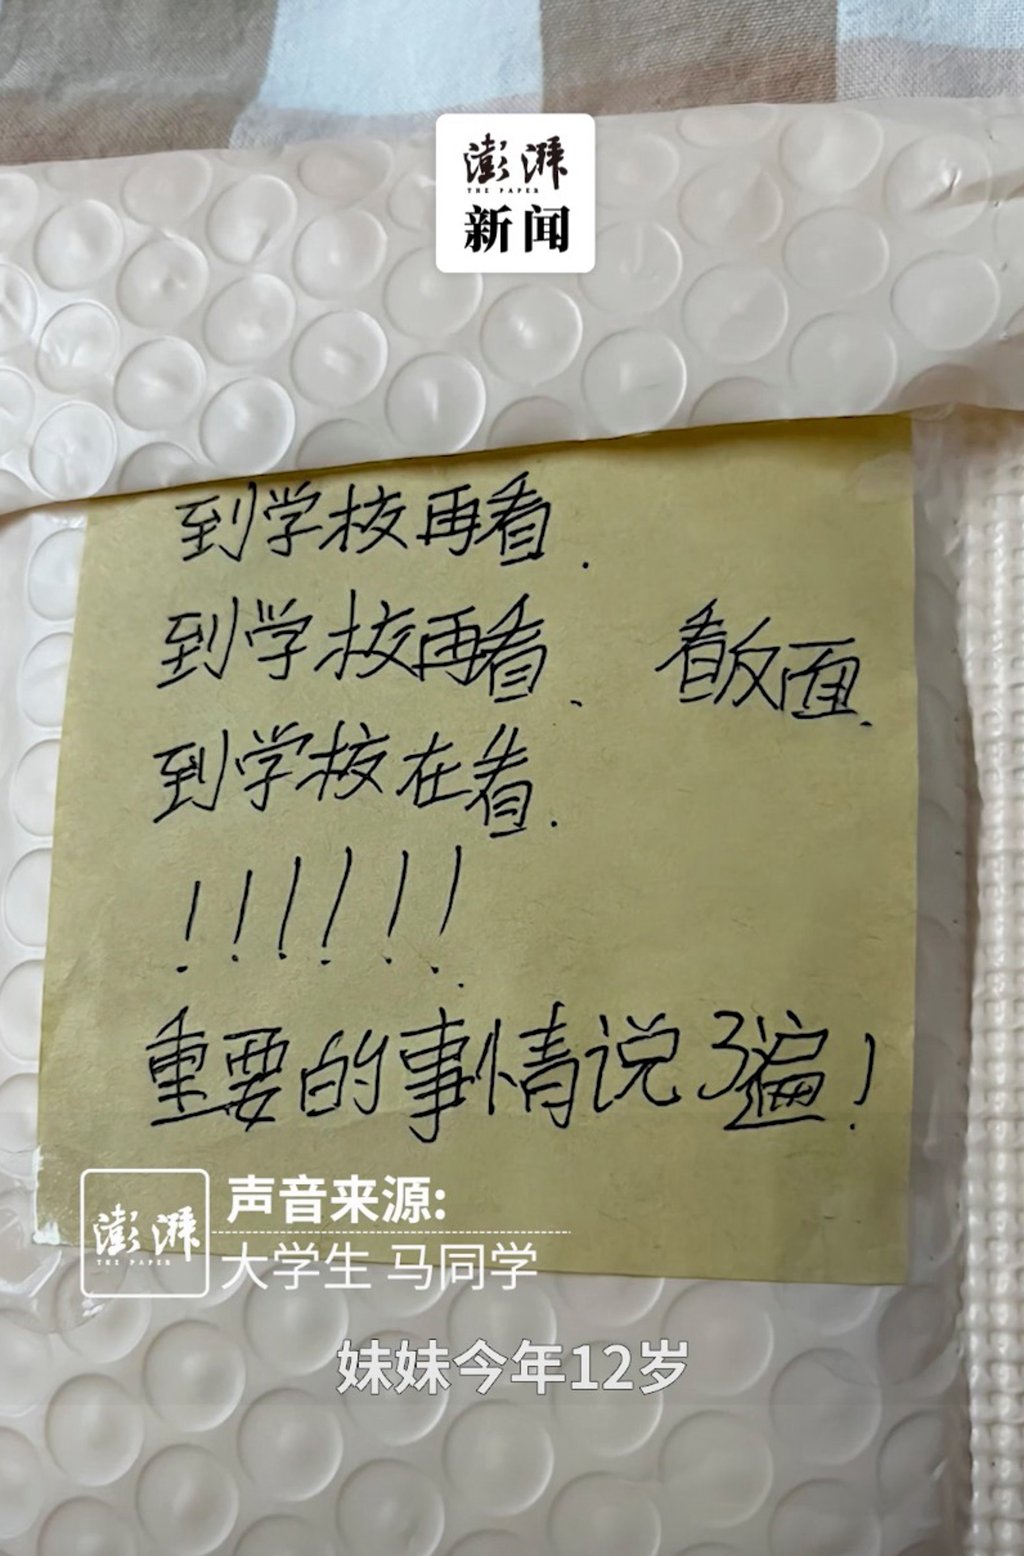 澎湃
THE PAPER
新闻
到学校再看.
到学校再看. 看反面.
到学校在看.
!!!!!!
重要的事情说3遍!
澎湃
THE PAPER
声音来源:
大学生 马同学
妹妹今年12岁